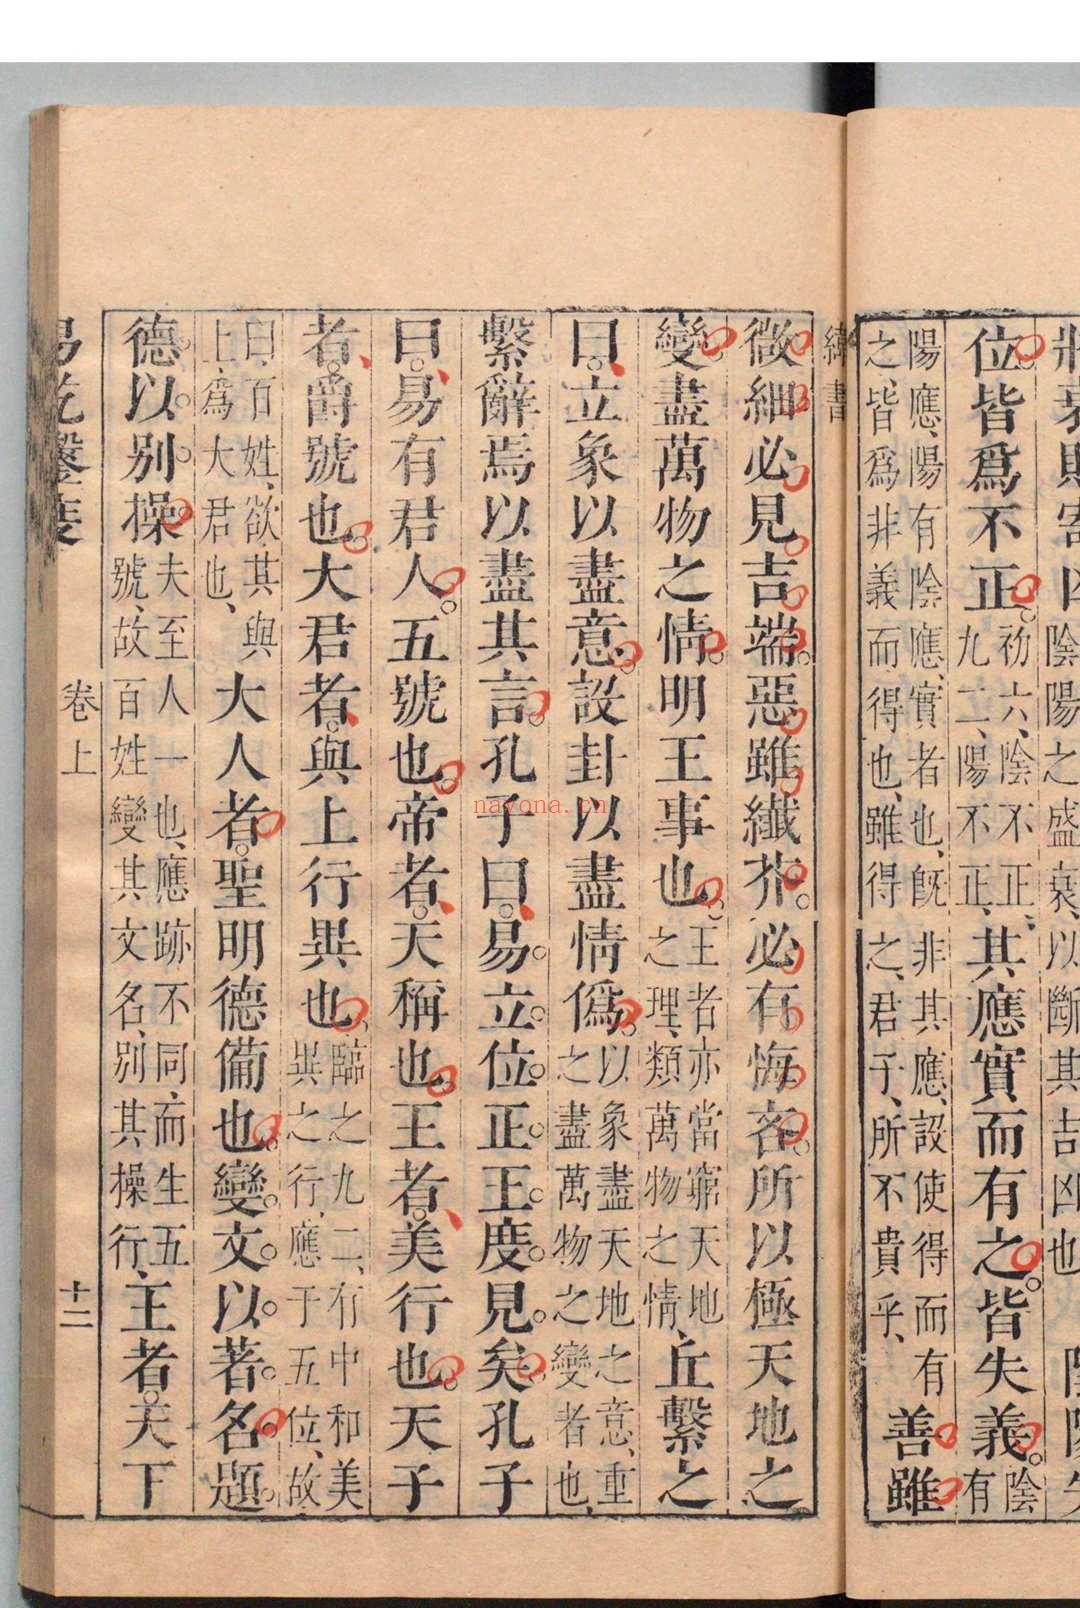 陰陽之盛衰、以斷其吉凶也
位皆爲不正初六、陰不正、九二、陽不正、其應實而有之皆失義陰有
陽應、陽有陰應、實者也、旣非其應、設使得而有之、皆爲非義而得也、雖得之、君子、所不貴乎、善雖
緯書
微細必見吉端惡雖纖芥必有悔吝所以極天地之
變盡萬物之情明王事也王者亦當窮天地之理、類萬物之情、丘繫之
曰立象以盡意設卦以盡情僞以象盡天地之意、重之盡萬物之變者也、
繫辭焉以盡其言孔子曰易立位正王度見矣孔子
曰易有君人五號也帝者天稱也王者美行也天子
者爵號也大君者與上行異也臨之九二、有中和美異之行、應于五位、故
曰百姓、欲其與上、爲大君也、大人者聖明德備也變文以著名題
德以别操夫至人一也、應跡不同、而生五號、故百姓變其文名、别其操行、王者天下
易乾鑿度
卷上
十二
nayona.cn